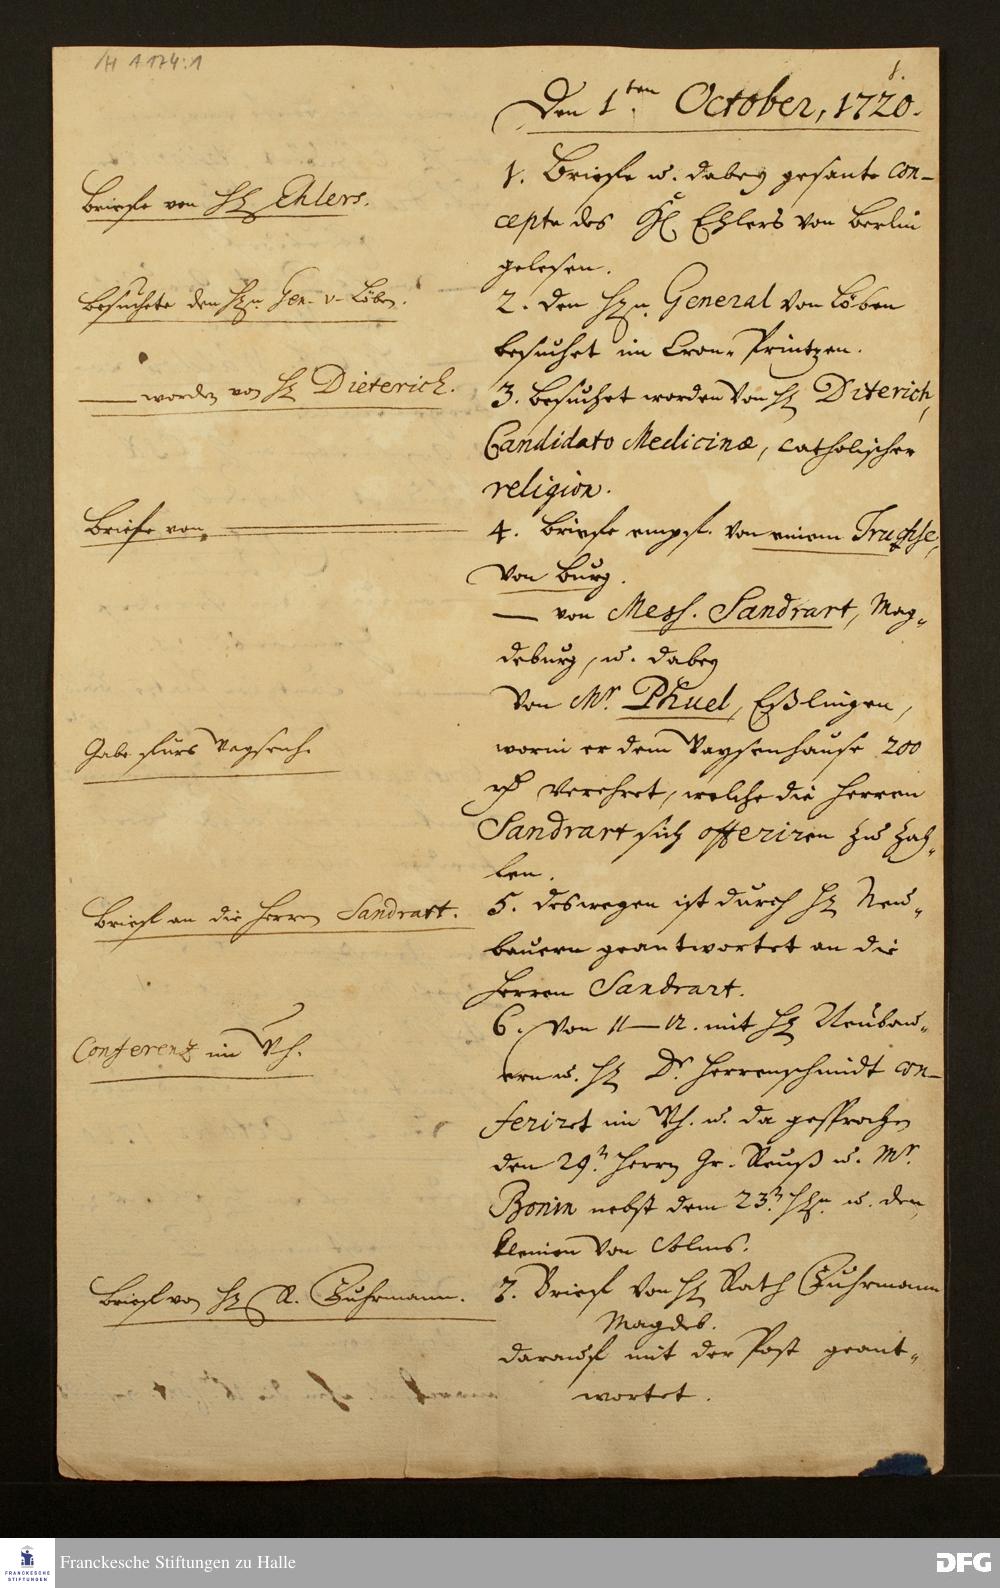 /H 1174:1
1.
Den 1ten October, 1720.
Briefe von H. Ehlers.
1. Briefe u. dabey gesante con-
cepte des H. Ehlers von Berlin
gelesen.
Besuchete den Hrn. Gen. v. Löben.
2. Den Hrn. General von Löben
besuchet im Cron-Printzen.
— worden von H. Dieterich.
3. besuchet worden von H. Diterich,
Candidato Medicinæ, catholischer
religion.
Briefe von
4. Briefe empf. von einem Truchse,
von Burg.
— von Mess. Sandrart, Mag-
deburg, u. dabey
von Mr. Phuel, Eßlingen,
Gabe fürs Waysenh.
worin er dem Waysenhause 200
rh verehret, welche die Herren
Sandrart sich offeriren zu zah-
len.
Brief an die Herren Sandrart.
5. deswegen ist durch H. Neu-
bauern geantwortet an die
Herren Sandrart.
Conferenz im Wh.
6. Von 11–12. mit H. Neubau-
ern u. H. Dr. Herrenschmidt con-
feriret im Wh. u. da gesprochen
den 29. Herrn Gr. Reuß u. Mr.
Bonin nebst dem 23. Hrn. u. den
kleinen von Solms.
Brief von H. R. Cuhrmann.
7. Brief von H. Rath Cuhrmann
Magdeb.
darauf mit der Post geant-
wortet.
FRANCKESCHE
STIFTUNGEN
Franckesche Stiftungen zu Halle
DFG